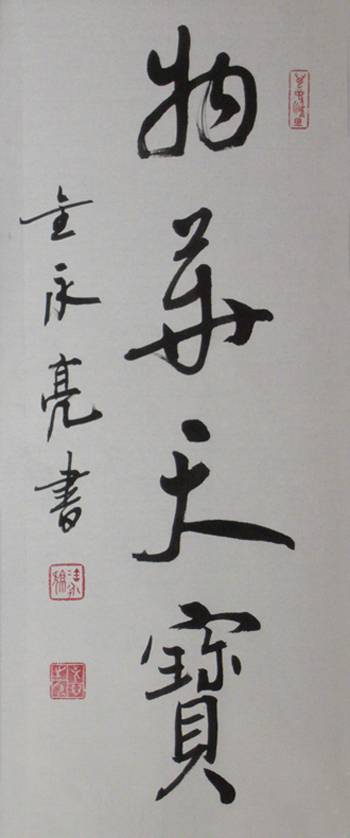 物華天寶
永亮書